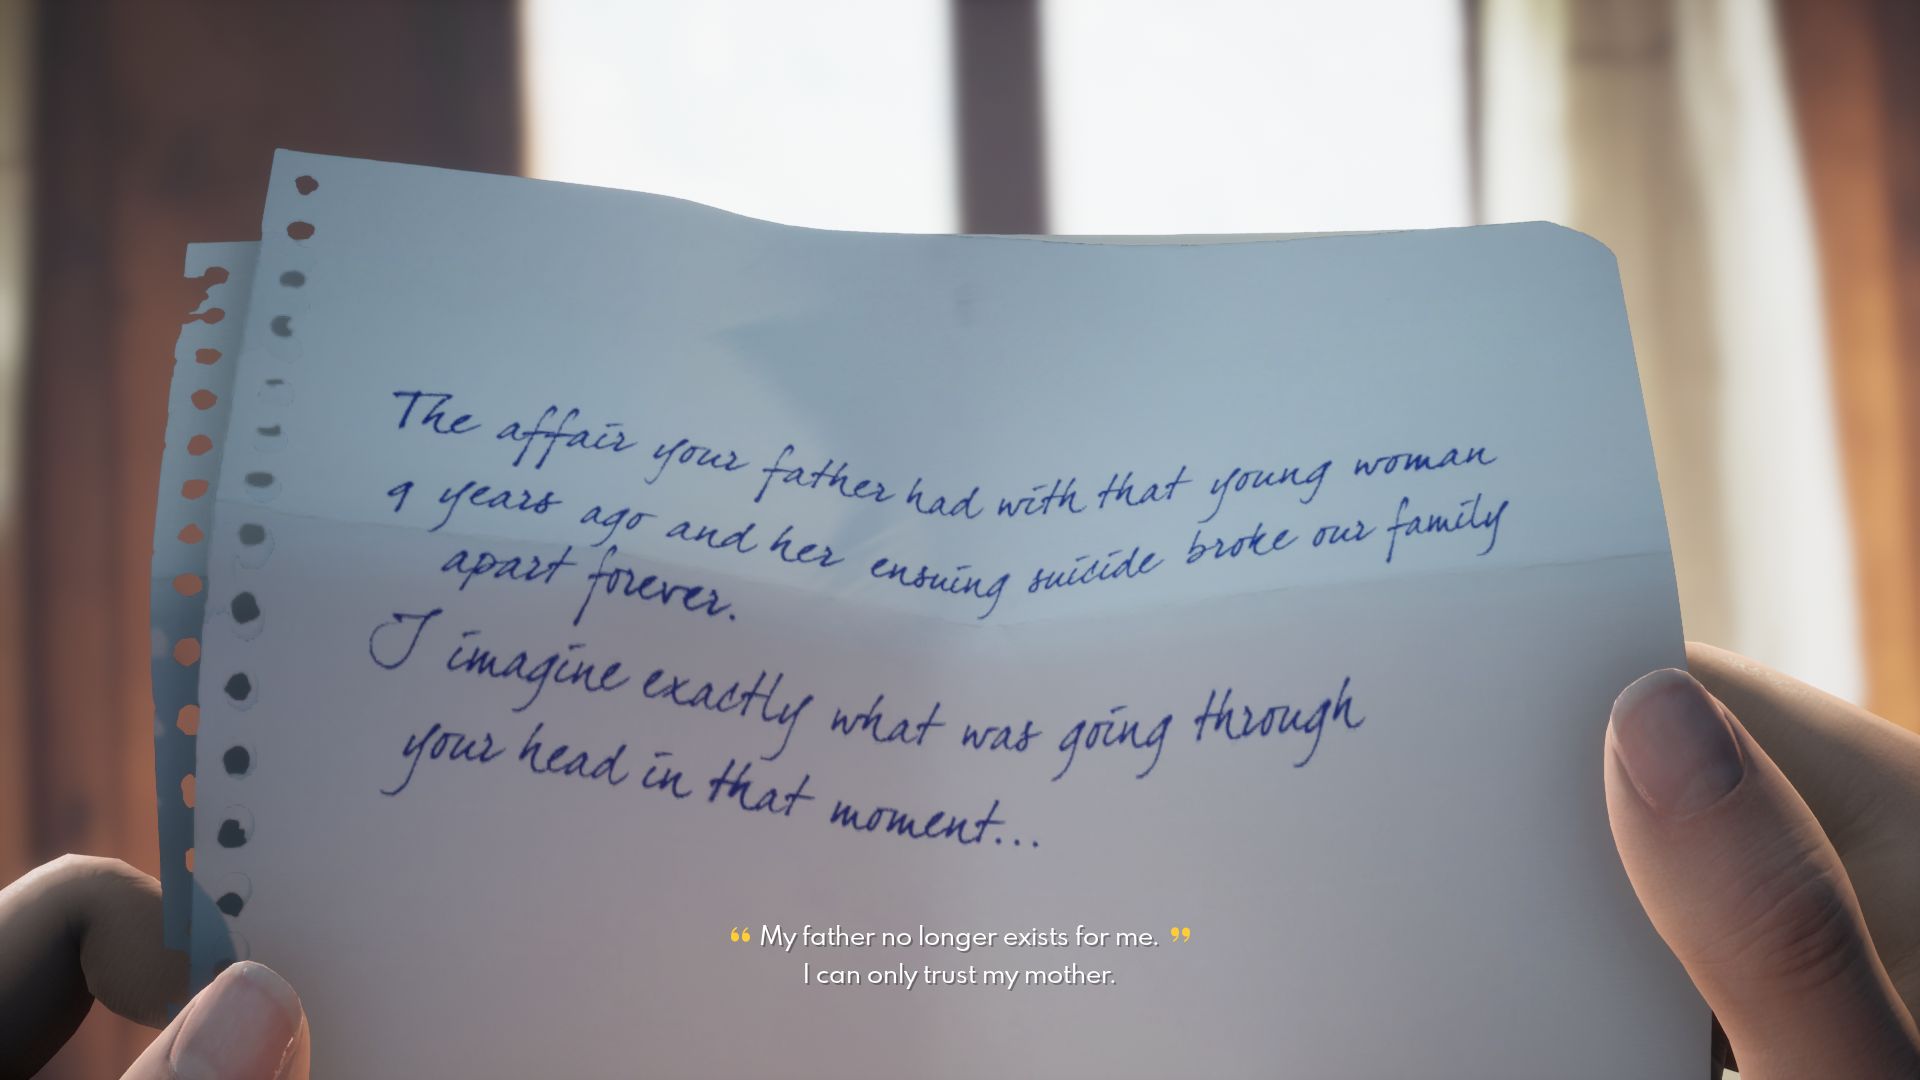 The affair your father had with that young woman
9 years ago and her ensuing suicide broke our family
apart forever.
I imagine exactly what was going through
your head in that moment...
“ My father no longer exists for me. ”
I can only trust my mother.